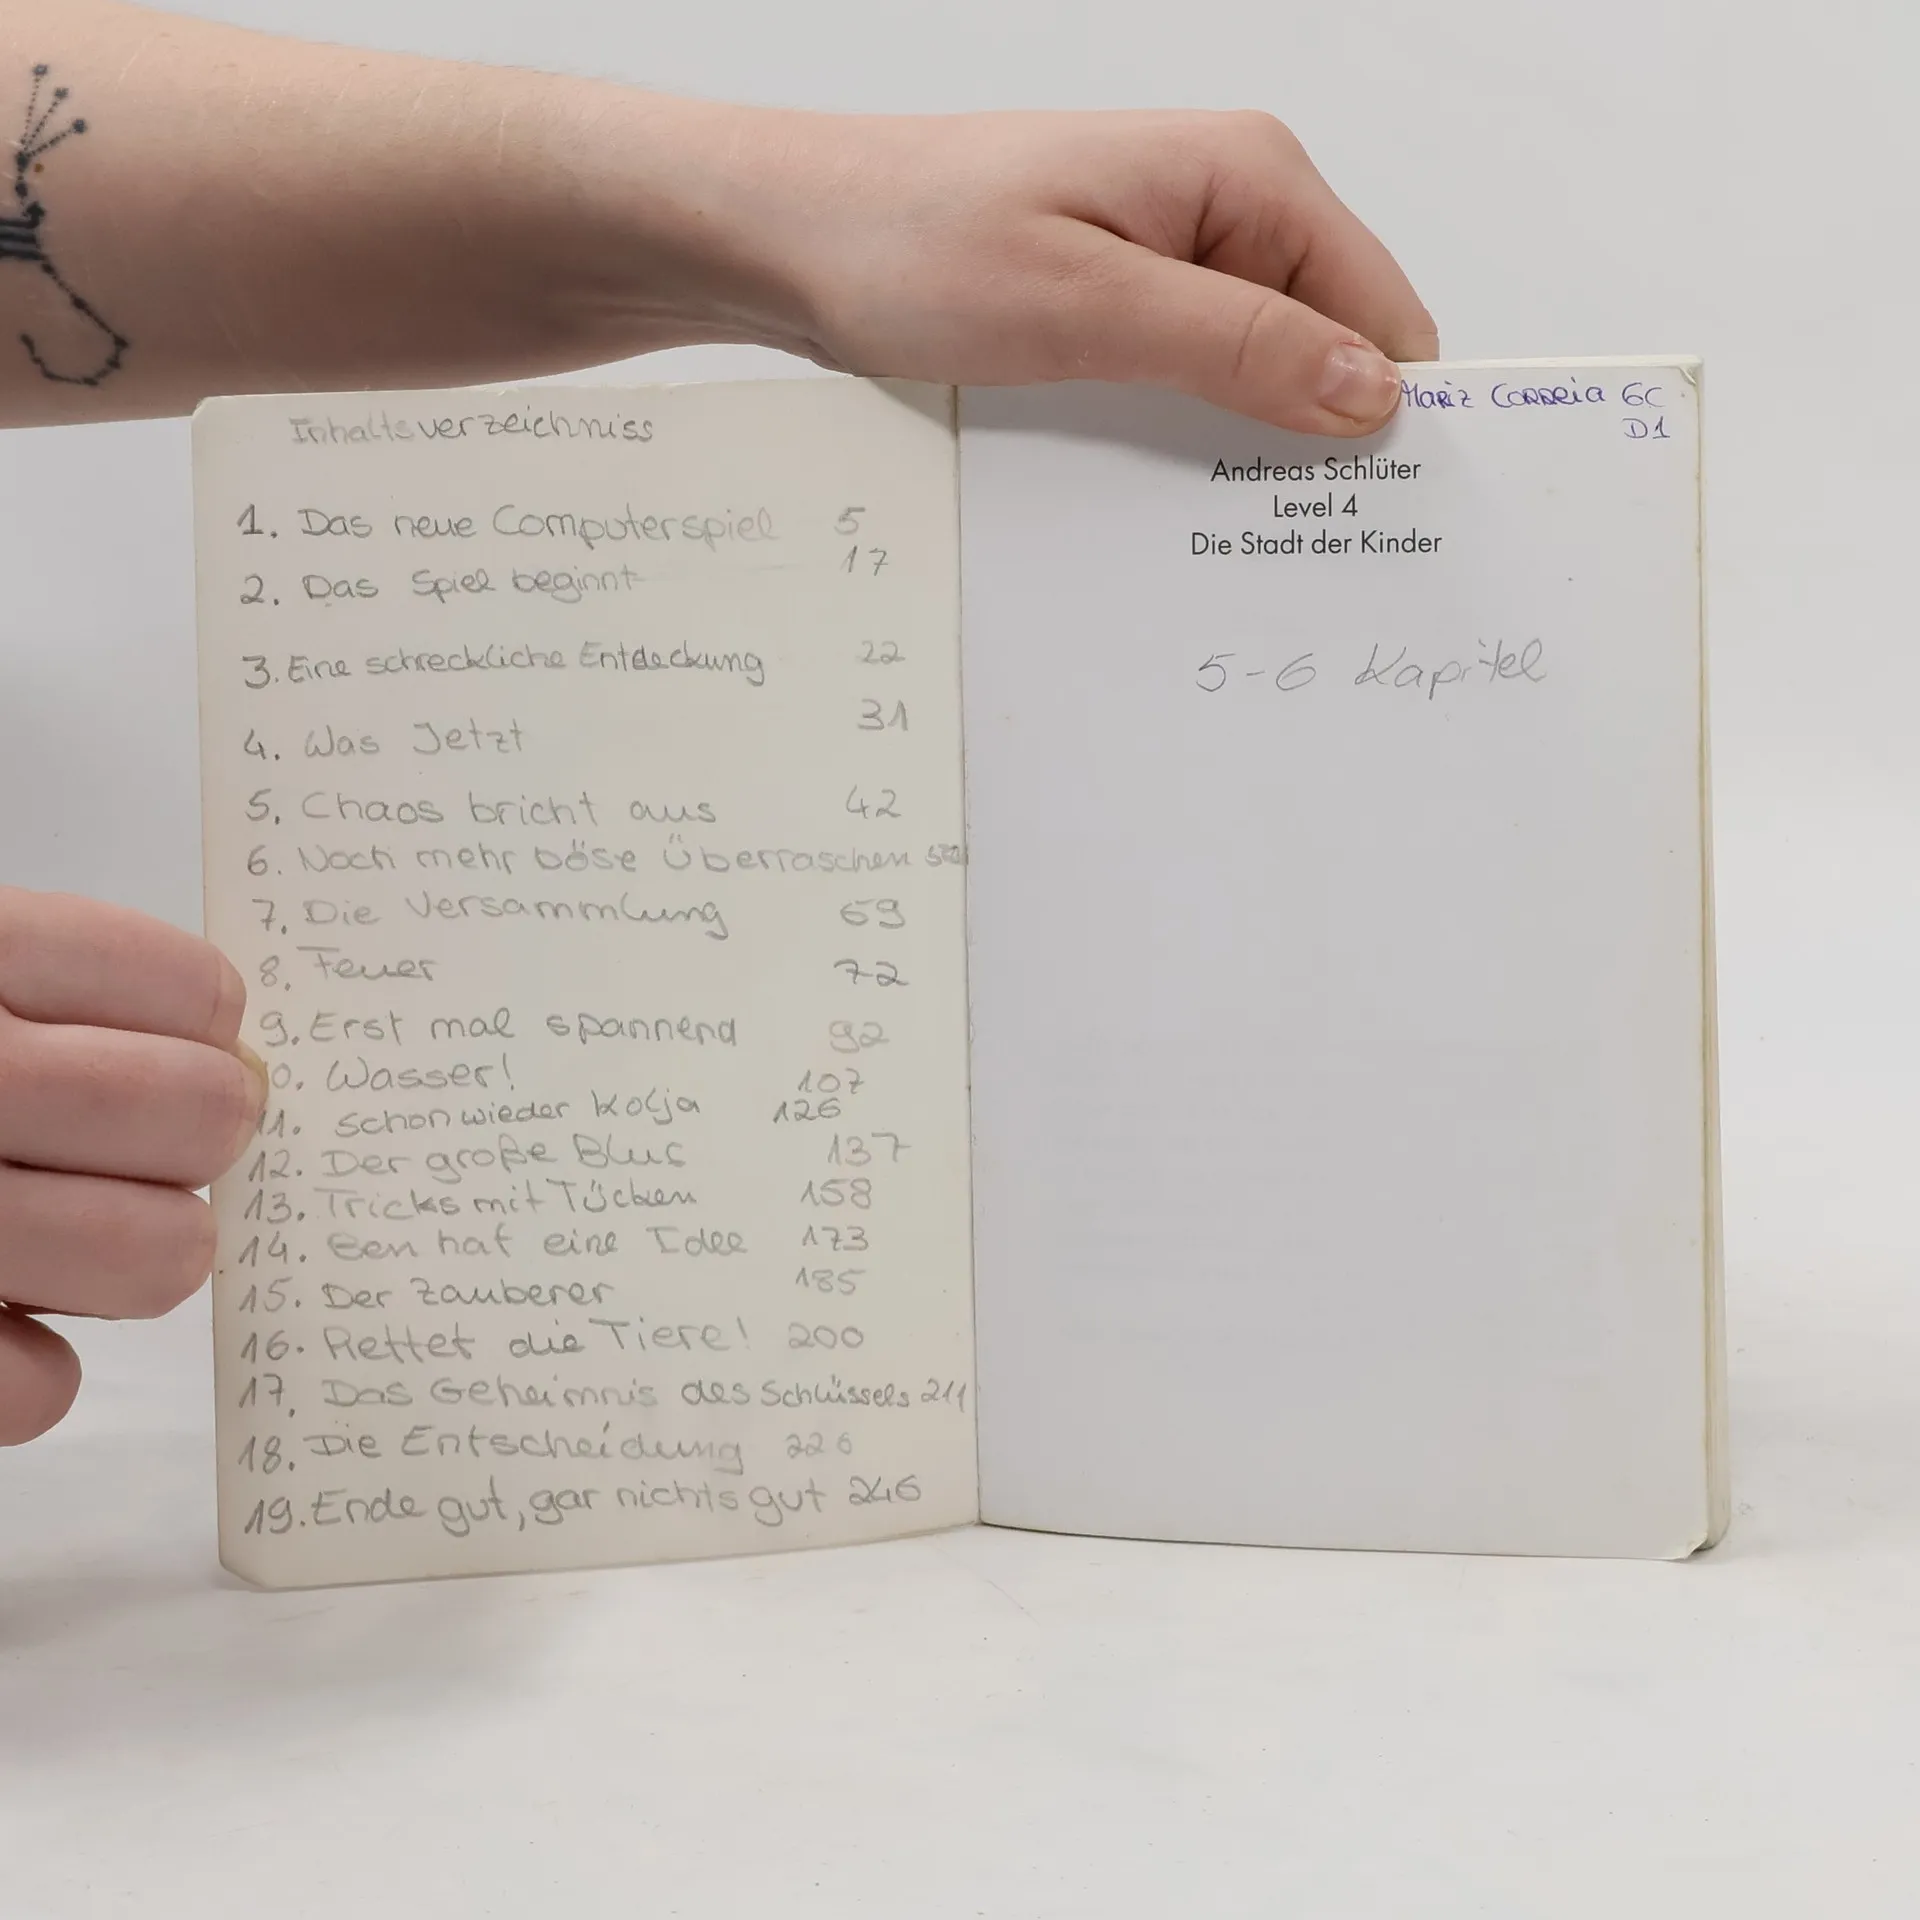 Inhaltsverzeichniss
1. Das neue Computerspiel 5
2. Das Spiel beginnt 17
3. Eine schreckliche Entdeckung 22
4. Was Jetzt 31
5. Chaos bricht aus 42
6. Noch mehr böse Überraschen
7. Die Versammlung 69
8. Feuer 72
9. Erst mal spannend 92
10. Wasser! 107
11. schon wieder Kolja 126
12. Der große Blus 137
13. Tricks mit Tücken 158
14. Ben hat eine Idee 173
15. Der Zauberer 185
16. Rettet die Tiere! 200
17. Das Geheimnis des Schlüssels 211
18. Die Entscheidung 226
19. Ende gut, gar nichts gut 246
Mariz Correia 6C
D1
Andreas Schlüter
Level 4
Die Stadt der Kinder
5-6 Kapitel